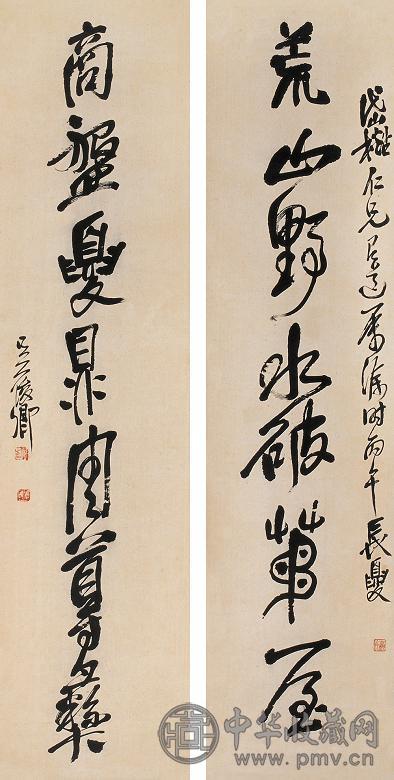 岱樵仁兄有道屬 時丙午長夏
荒山野水破茅屋
商盤夏鼎周尊彝
吳俊卿
中华收藏网
www.pmv.cn